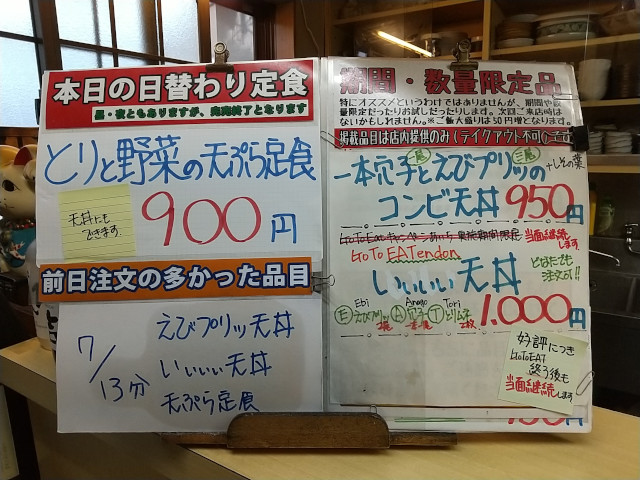 本日の日替わり定食
昼・夜ともありますが、完売終了となります
とりと野菜の天ぷら定食
天丼にも
できます
900円
前日注文の多かった品目
7/13分
えびプリッ天丼
いぃぃぃ天丼
天ぷら定食
期間・数量限定品
特にオススメというわけではありませんが、期間や数
量限定だったりお試しだったりします。次回ご来店時は
ないかもしれません。※ご飯大盛りは50円増となります。
掲載品目は店内提供のみ(テイクアウト不可)です
一本穴子とえびプリッの
+しその葉
コンビ天丼 950円
GoToEatキャンペーンあいち 実施期間限定 当面継続します。
GoTo EATendon
いぃぃぃ天丼
どなたでも
注文可!!
Ebi Anago Tori
Ⓔえびプリッ Ⓐ穴子 Ⓣとりムネ
1,000円
好評につき
GoToEAT
終う後も
当面継続します